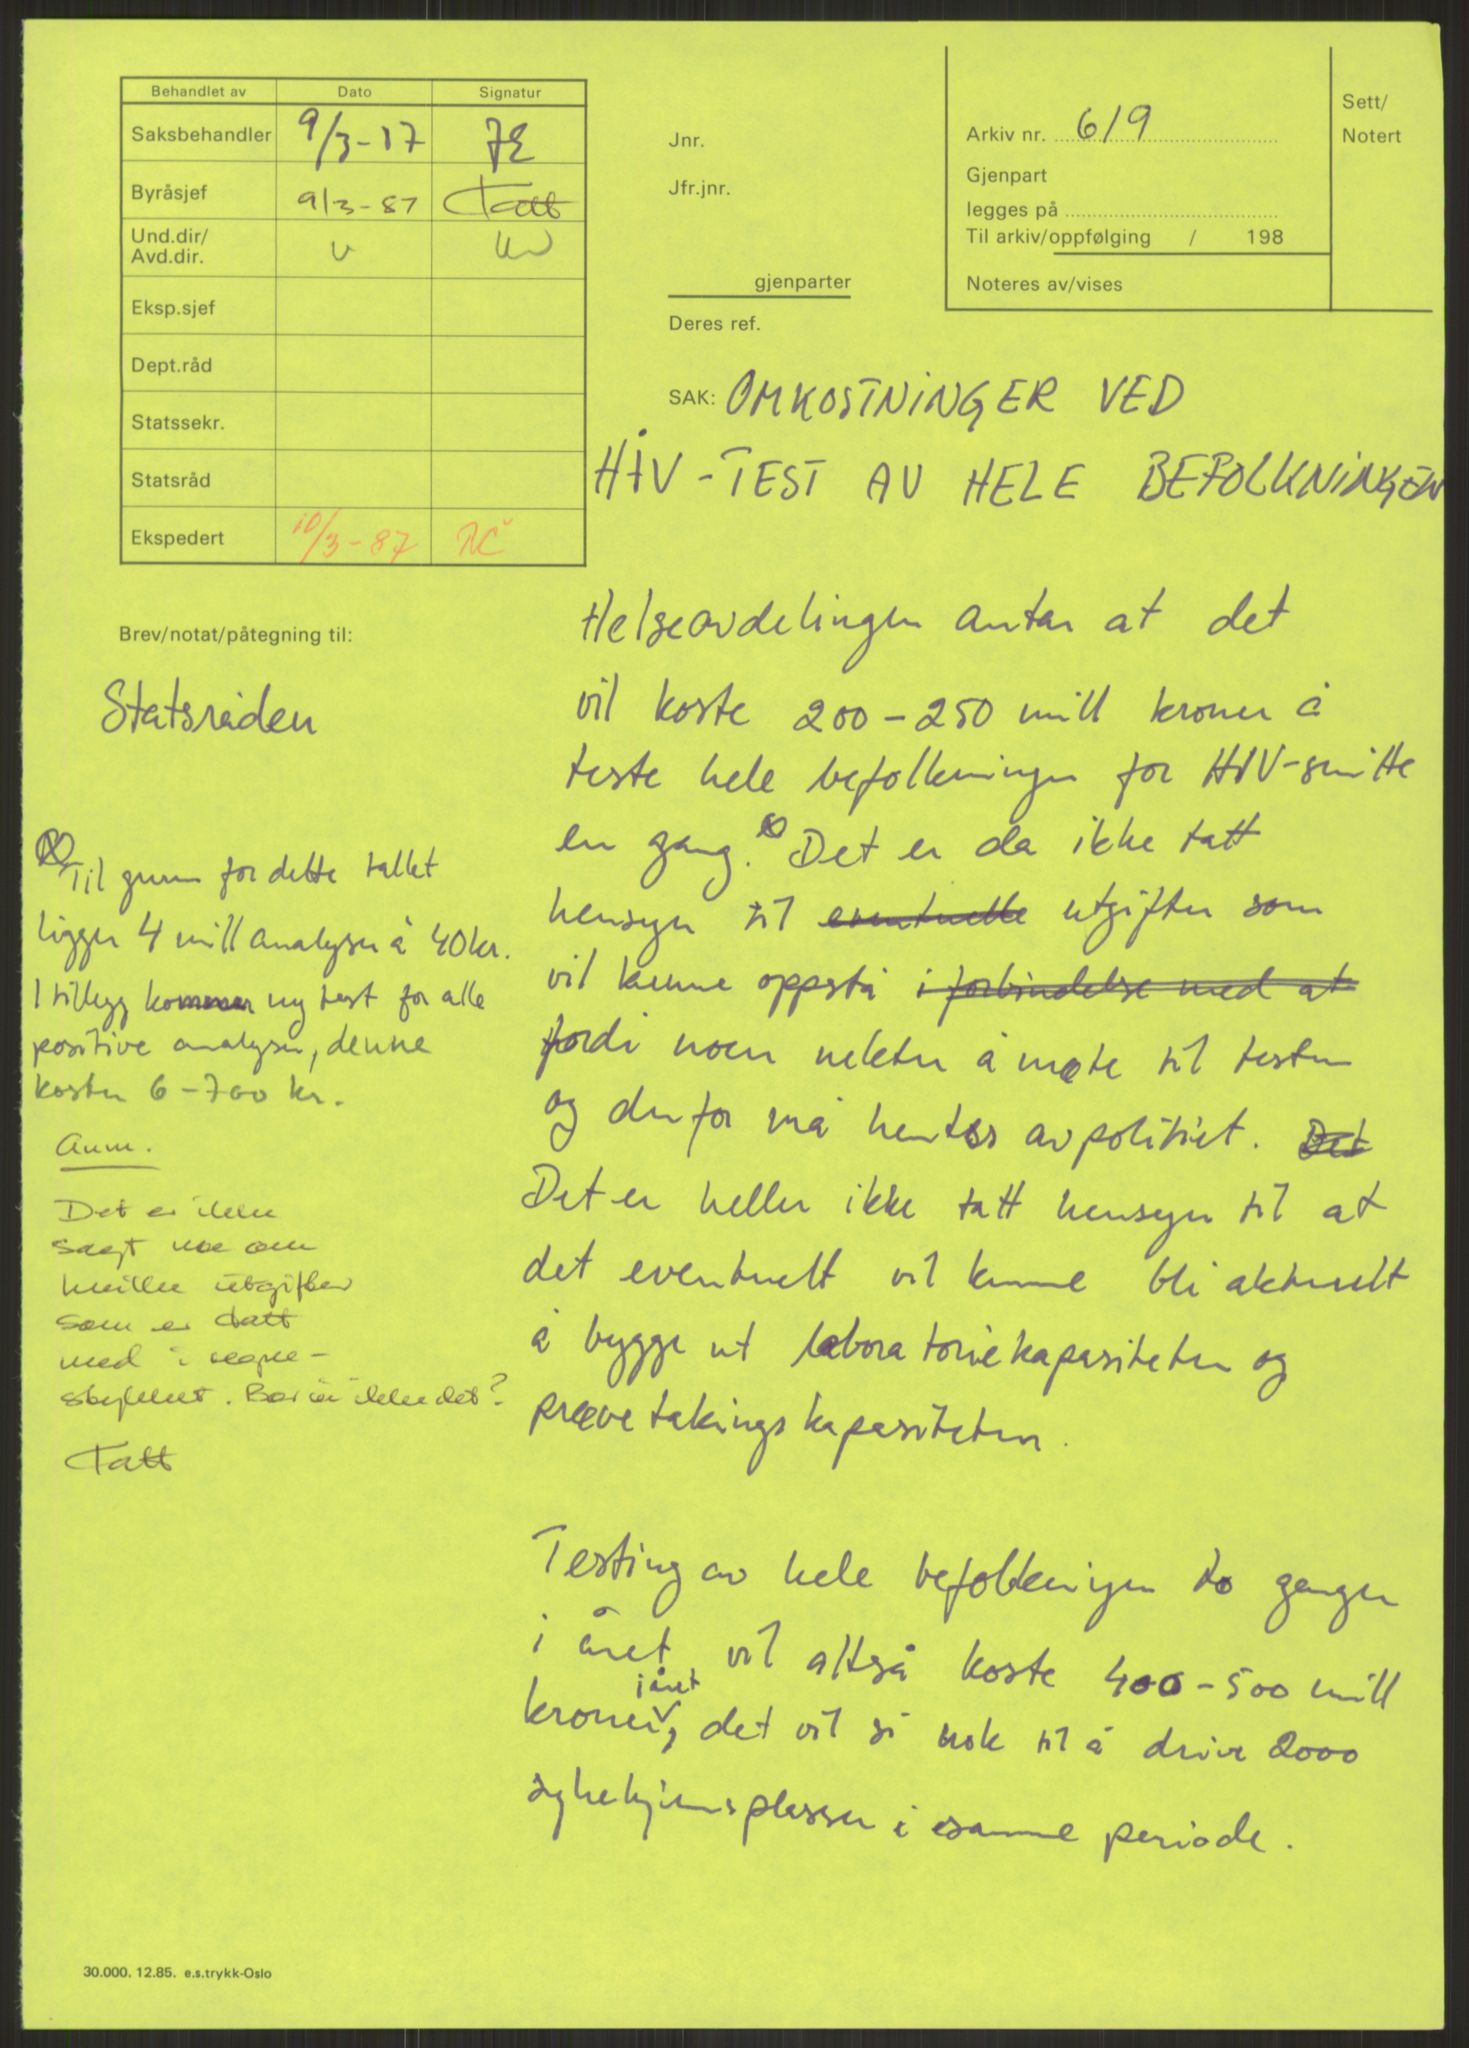 Behandlet av Dato Signatur
Saksbehandler 9/3-87 JE
Byråsjef 9/3-87 Tatt
Und.dir/
Avd.dir. v
Eksp.sjef
Dept.råd
Statssekr.
Statsråd
Ekspedert 10/3-87
Jnr.
Jfr.jnr.
gjenparter
Deres ref.
Arkiv nr. 619
Gjenpart
legges på
Til arkiv/oppfølging / 198
Noteres av/vises
Sett/
Notert
SAK: OMKOSTNINGER VED
HIV-TEST AV HELE BEFOLKNINGEN
Brev/notat/påtegning til:
Statsråden
Helseavdelingen antar at det
vil koste 200-250 mill kroner å
teste hele befolkningen for HIV-smitte
en gang. Det er da ikke tatt
hensyn til eventuelle utgifter som
vil kunne oppstå i forbindelse med at
fordi noen nekter å møte til testen
og derfor må hentes av politiet. Det
Det er heller ikke tatt hensyn til at
det eventuelt vil kunne bli aktuelt
å bygge ut laboratoriekapasiteten og
prøvetakingskapasiteten.
Testing av hele befolkningen to ganger
i året vil altså koste 400-500 mill
i året
kroner, det vil si nok til å drive 2000
sykehjemsplasser i samme periode.
Til grunn for dette tallet
ligger 4 mill analyser à 40 kr.
I tillegg kommer ny test for alle
positive analyser, denne
koster 6-700 kr.
Anm.
Det er ikke
sagt noe om
hvilke utgifter
som er tatt
med i regne-
stykket. Bør vi ikke det?
Tatt
30.000. 12.85. e.s.trykk-Oslo